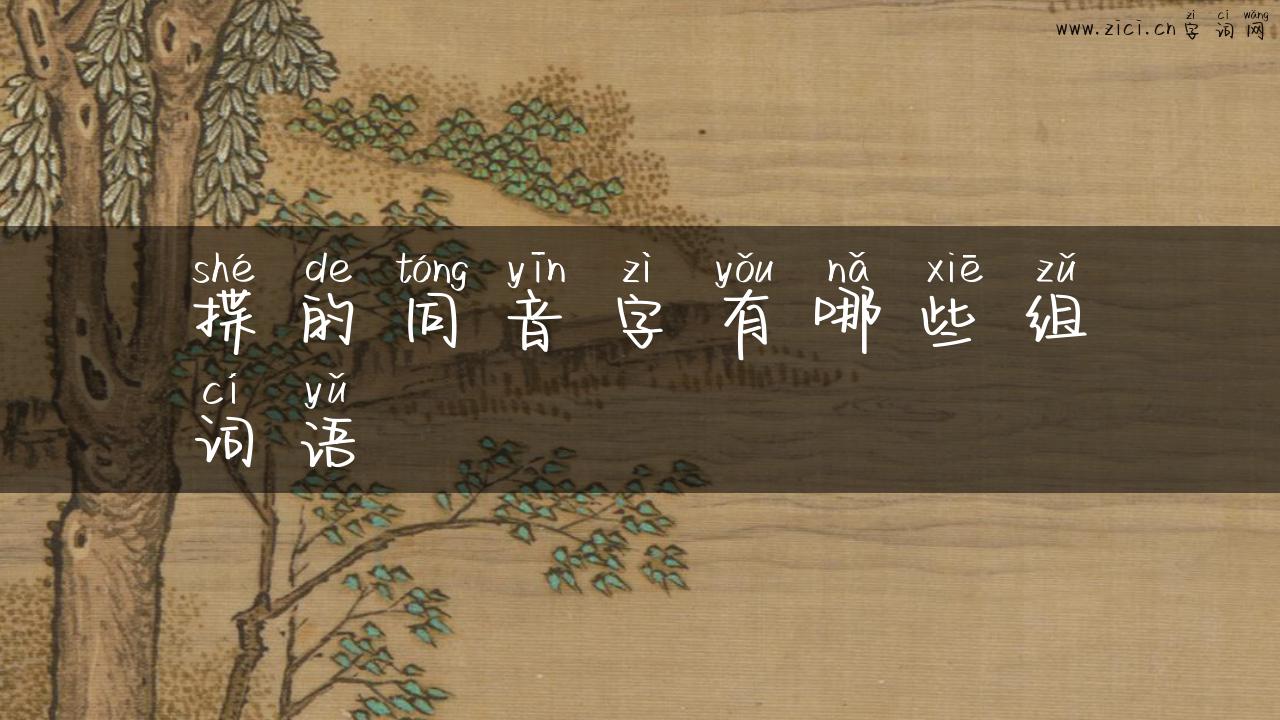 zì cí wǎng
www.zici.cn字词网
shé de tóng yīn zì yǒu nǎ xiē zǔ
揲的同音字有哪些组
cí yǔ
词语